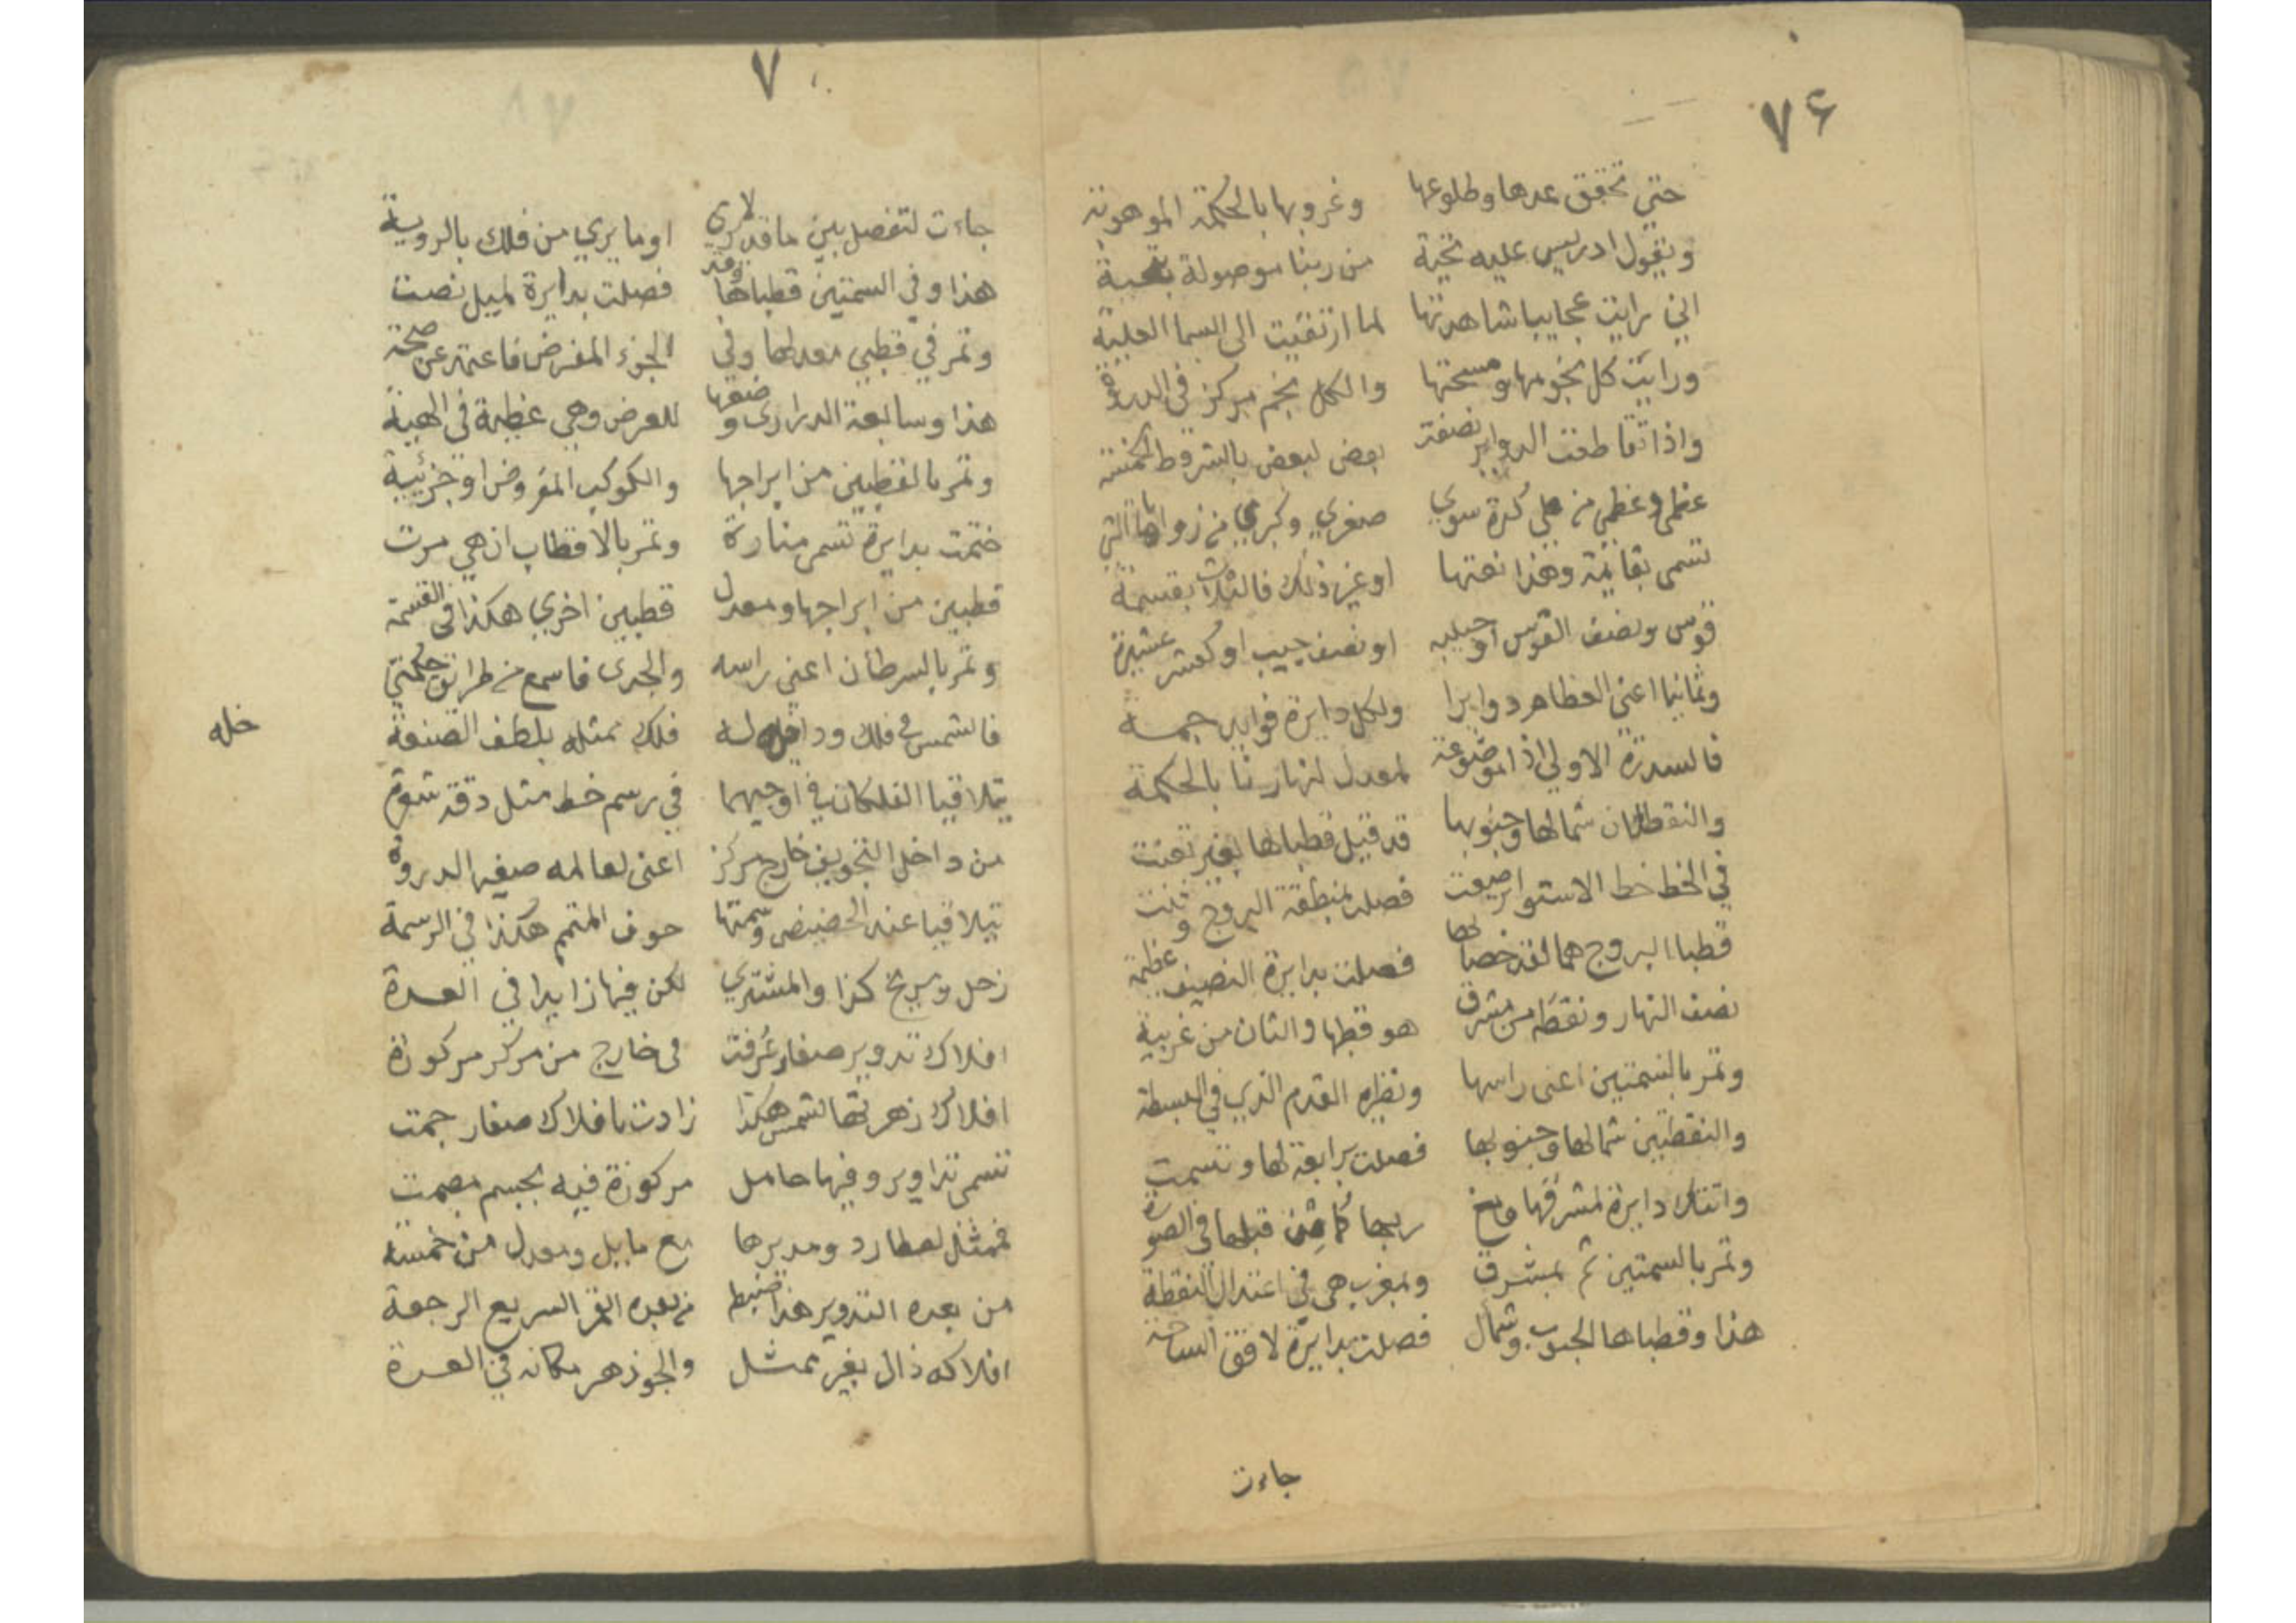 ٧۶
حتي تحقق عدها وطلوعها وغروبها بالحكمة الموهوبة
ويقول ادريس عليه تحية من ربنا موصولة بمحبة
اني رايت عجايبا شاهدتها لما ارتقيت الى السما العلية
ورايت كل نجومها ومسحتها والكل نجم مركز في الدورة
واذا تقاطعت الدواير نصفت بعض لبعض بالشروط
عظمي وعظمي من على كرة سوي صغري وكبري من زواياها التي
تسمى بقايمة وهذا نعتها او غير ذلك فالثلاث بقسمة
قوس ونصف القوس او جيبه او نصف جيب او كعشر عشيرة
وثمانيا اعني العظام دوايرا ولكل دايرة فوايد جمة
فالسدرة الاولي اذا موضوعة لمعدل لنهارنا بالحكمة
والنقطتان شمالها وجنوبها قد قيل قطباها بغير تعنت
في الخط خط الاستوا رصعت فصلت لمنطقة البروج وثنت
قطبا البروج هما لقد خصا لها فصلت بدايرة النصيف عظيمة
نصف النهار ونقطة من مشرق هو قطبها والثان من غربية
وتمر بالسمتين اعني راسها ونظيره القدم الذي في البسطة
والنقطتين شمالها وجنوبها فصلت برابعة لها وتسمت
دايرة لمشرقها قبلها في الصورة
وتمر بالسمتين ثم بمشرق وبمغرب هي في اعتدال النقطة
هذا وقطباها الجنوب وشمال فصلت بدايرة لافق الساحة
جاءت
٧
جاءت لتفصل بين ما قد لا يري او ما يري من فلك بالروية
هذا وفي السمتين قطباها وقد فصلت بدايرة لميل نصت
وتمر في قطبي معدلها وفي الجزء المفرض فاعتمد عن صحة
هذا وسابعة الدراري وضعها للعرض وهي عظيمة في الهية
وتمر بالقطبين من ابراجها والكوكب المفروض او جزئية
ختمت بدايرة تسمى منارة وتمر بالاقطاب ان هي مرت
قطبين من ابراجها ومعدل قطبين اخري هكذا في القسمة
وتمر بالسرطان اعني راسه والجدى فاسمع من طرائق حكمتي
فالشمس في فلك وداخله له فلك ممثله بلطف الصنعة
خله
يتلاقيا الفلكان في اوجيهما في رسم خط مثل دقة شعرة
من داخل التجويف خارج مركز اعنى لعالمه صغير الدورة
يتلاقيا عند الحضيض وسمتها حوف المتمم هكذا في الرسمة
زحل ومريخ كذا والمشتري لكن فيها زايدا في العدة
افلاك تدوير صغار عُرفت فى خارج من مركز مركوزة
افلاك زهرتها لشمس هكذا زادت بافلاك صغار جمت
تسمى تداوير وفيها حامل مركوزة فيه بجسم مصمت
فممثل لعطارد ومديرها مع مايل ومعدل من خمسة
من بعده التدوير هذا ضبط من بعده القمر السريع الرجعة
افلاكه ذال بغير ممثل والجوزهر مكانه في العدة